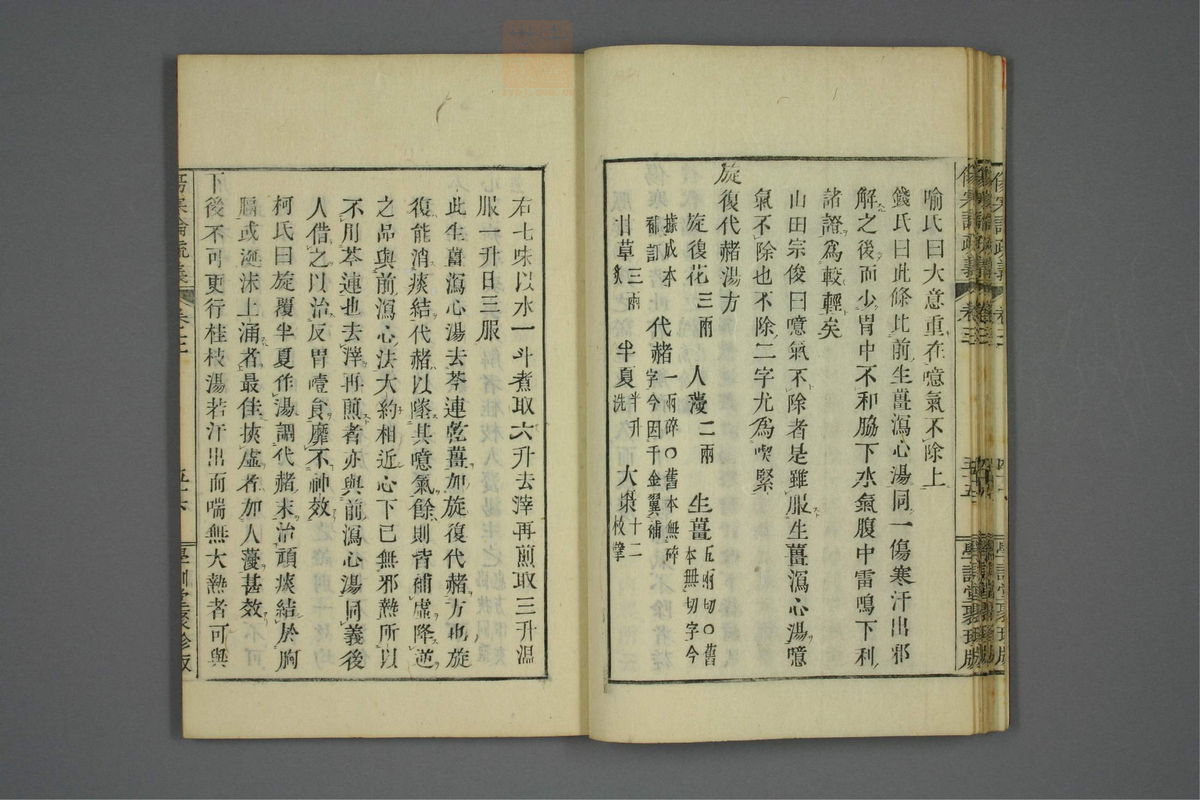 喻氏曰大意重在噫氣不除上
錢氏曰此條比前生薑瀉心湯同一傷寒汗出邪
解之後而少胃中不和脇下水氣腹中雷鳴下利
諸證爲較輕矣
山田宗俊曰噫氣不除者是雖服生薑瀉心湯噫
氣不除也不除二字尤爲喫緊
旋復代赭湯方
旋復花三兩 人蓡二兩 生薑五兩切〇舊本無切字今
據成本補訂 代赭一兩碎〇舊本無碎字今因千金翼補
甘草三兩炙 半夏半升洗 大棗十二枚擘
右七味以水一斗煮取六升去滓再煎取三升溫
服一升日三服
此生薑瀉心湯去芩連乾薑加旋復代赭方也旋
復能消痰結代赭以墜其噫氣餘則皆補虛降逆
之品與前瀉心法大約相近心下已無邪熱所以
不用芩連也去滓再煎者亦與前瀉心湯同義後
人借之以治反胃噎食靡不神效
柯氏曰旋覆半夏作湯調代赭末治頑痰結於胸
膈或涎沫上涌者最佳挾虛者加人蓡甚效
下後不可更行桂枝湯若汗出而喘無大熱者可與
卷三
五十六
學訓堂聚珍版